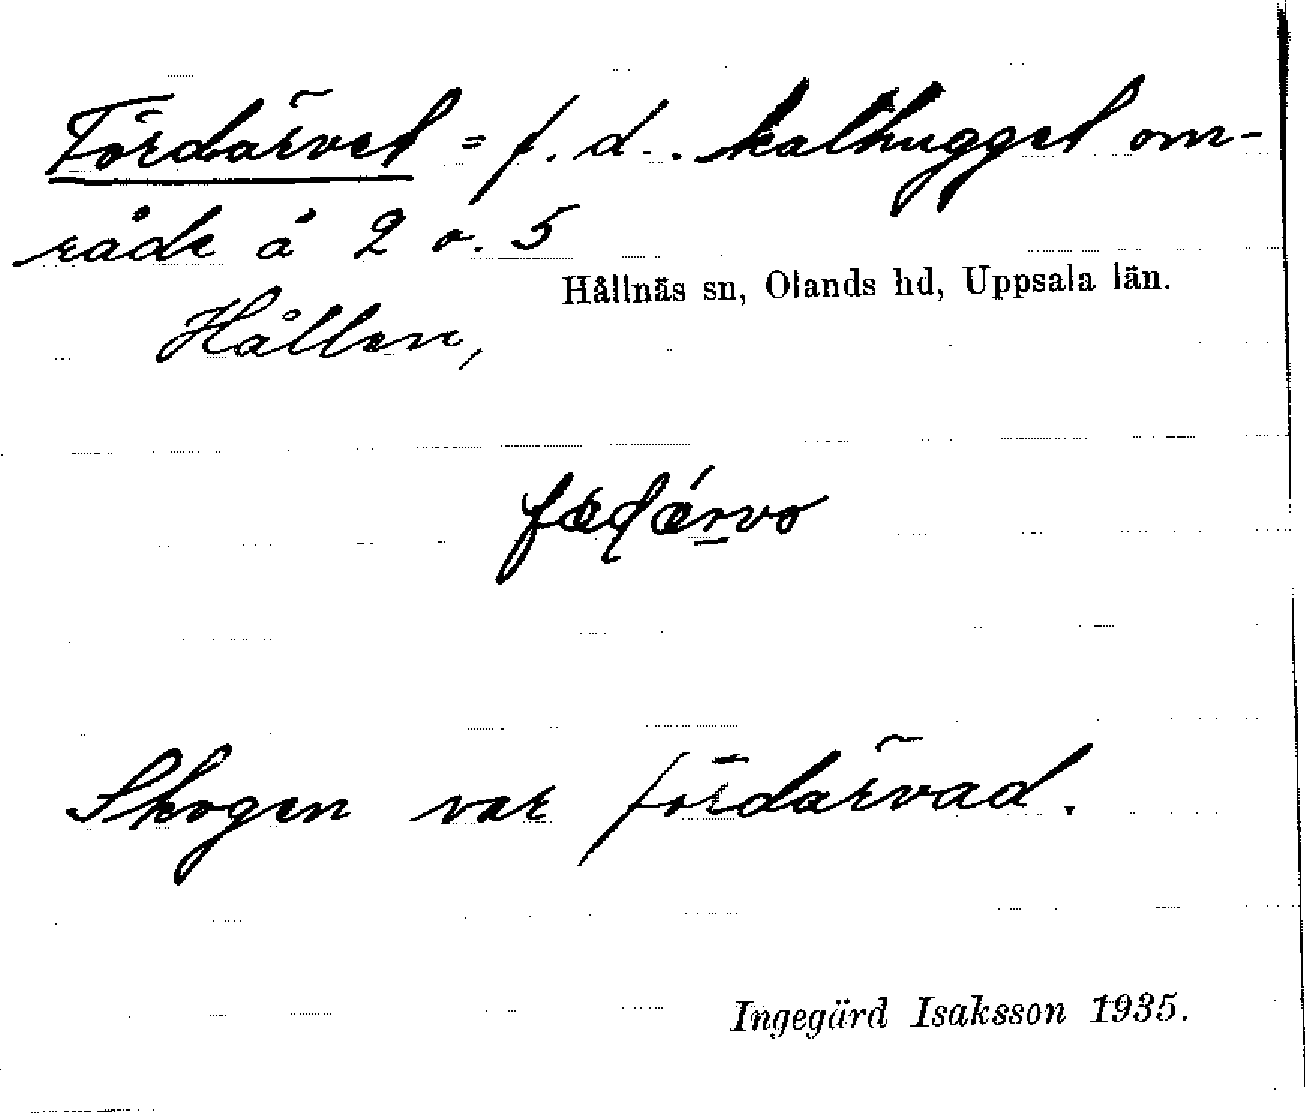 Fördärvet = f. d. kalhugget om-
råde å 2 o. 5
Hållnäs sn, Olands hd, Uppsala län.
Hållen,
fœdœ́rvo
Skogen var fördärvad.
Ingegärd Isaksson 1935.